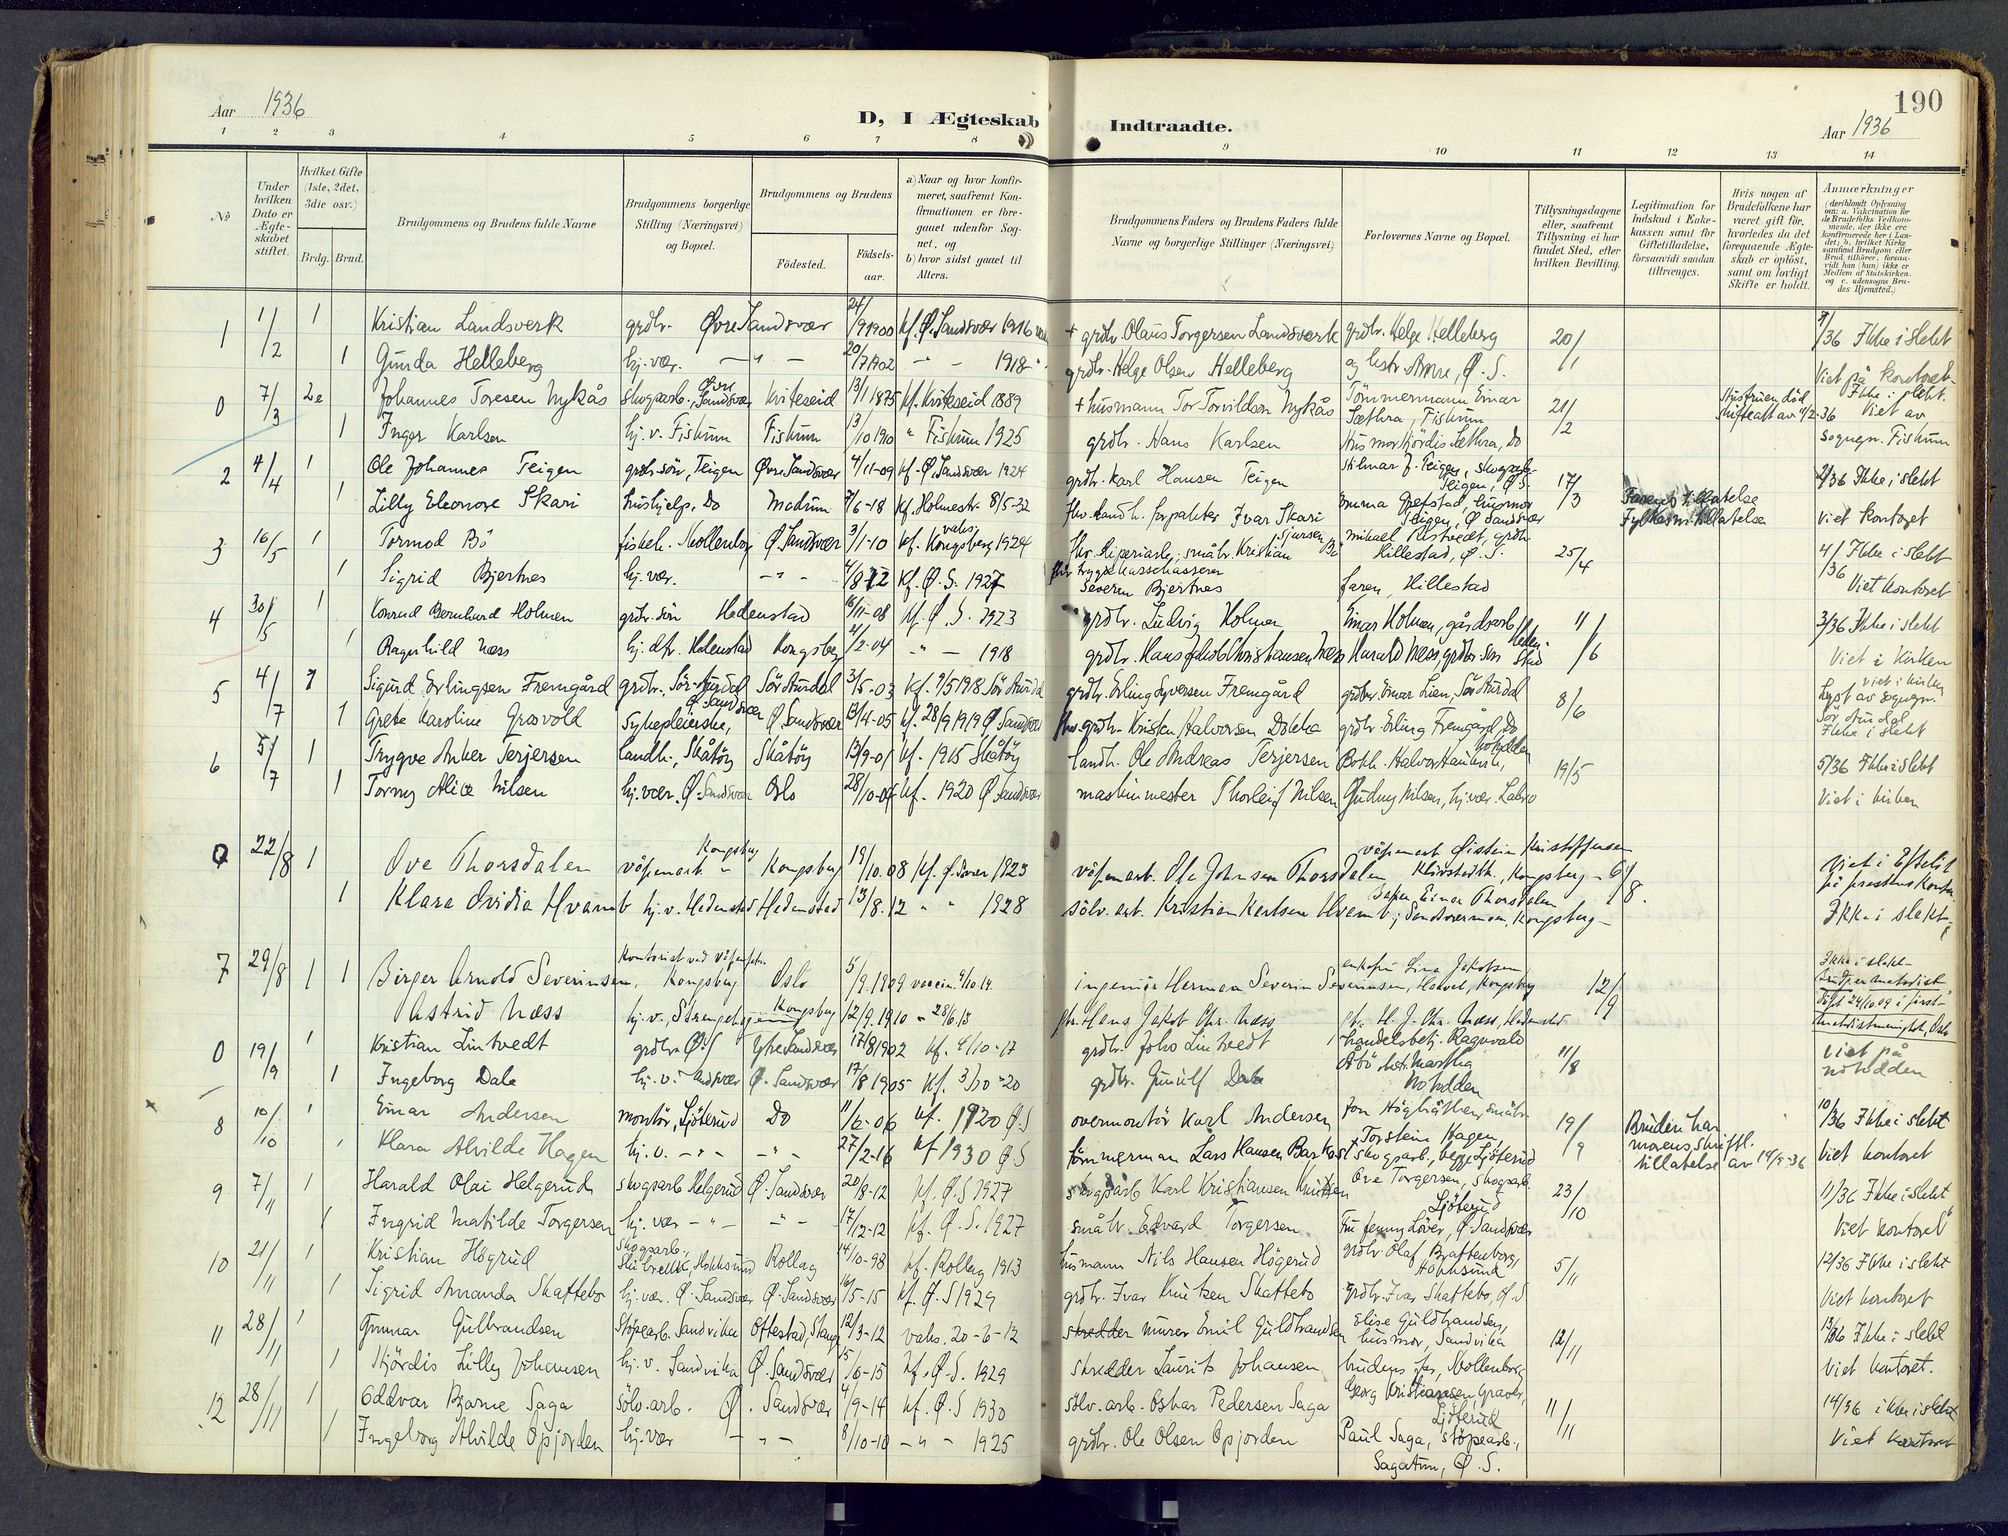 Aar 1936
D, I Ægteskab Indtraadte.
190
Aar 1936
1 2 3 4 5 6 7 8 9 10 11 12 13 14
№
Under hvilken Dato er Ægteskabet stiftet.
Hvilket Gifte (1ste, 2det, 3die osv.)
Brdg. Brud.
Brudgommens og Brudens fulde Navne
Brudgommens borgerlige Stilling (Næringsvei) og Bopæl.
Brudgommens og Brudens
Fødested.
Fødsels-aar.
a) Naar og hvor konfirmeret, saafremt Konfirmationen er foregaaet udenfor Sognet, og
b) hvor sidst gaaet til Alters.
Brudgommens Faders og Brudens Faders fulde Navne og borgerlige Stillinger (Næringsvei)
Forlovernes Navne og Bopæl.
Tillysningsdagene eller, saafremt Tillysning ei har fundet Sted, efter hvilken Bevilling.
Legitimation for Indskud i Enkekassen samt for Giftetilladelse, forsaavidt saadan tiltrænges.
Hvis nogen af Brudefolkene har været gift før, hvorledes da det foregaaende Ægteskab er opløst, samt om lovligt Skifte er holdt.
Anmærkninger
(deriblandt Oplysning om: a. Vakcination for de Brudefolks Vedkommende, der ikke ere konfirmerede her i Landet; b. hvilket Kirkesamfund Brudgom eller Brud tilhører, forsaavidt han (hun) ikke er Medlem af Statskirken, og c. udensogns Brudes Hjemsted.)
1 1/2 1 Kristian Landsverk grdbr. Øvre Sandsvær 24/9 1900 Kf. Ø. Sandsvær 1916 + grdbr. Olaus Torgersen Landsverk grdbr. Helge Helleberg 20/1 /36 Ikke i slekt
1 Gunda Helleberg hj. vær. - " - 20/7 1902 - " - 1918 grdbr. Helge Olsen Helleberg Ø. S. Viet på kontoret
0 7/3 2e Johannes Toresen Nykås skogsarb., Øvre Sandsvær Kviteseid 13/1 1875 Kf. Kviteseid 1889 + husmann Tor Torvildsen Nykås Tømmermann Einar Sæthra, Fiskum 21/2 Hustruen død skifteatt av 11/2-36 Ikke i slekt. Viet av
1 Inger Karlsen hj. v. Fiskum Fiskum 13/10 1910 " Fiskum 1925 grdbr. Hans Karlsen Husmor Hjördis Sæthra, Do sognepr. Fiskum
2 4/4 1 Ole Johannes Teigen grdbr. sön, Teigen Øvre Sandsvær 4/11-09 Kf. Ø. Sandsvær 1924 grdbr. Karl Hansen Teigen Hilmar J. Teigen, skogsarb. Teigen, Ø. S. 17/3 Farens tillatelse 2/36 Ikke i slekt
1 Lilly Eleonore Skari hushjelp, Do Modum 7/6-18 Kf. Holmestr. 8/5-32 fhv. landh. forpakter Ivar Skari Emma Grefstad, husmor Teigen, Ø Sandsvær Fylkesm. tillatelse Viet kontoret
3 16/5 1 Tormod Bö fiskeh. Mollenborg Ø. Sandsvær 3/1-10 Kf. Kongsberg 1924 småbr. Kristian Sjursen Bö mikael Ristvedt, grdbr. Hillestad, Ø. S. 25/4 4/36 Ikke i slekt
1 Sigrid Bjertnes hj. vær. - " - 4/8 12 Kf. Ø. S. 1927 fhv. trygdekassekasserer Severin Bjertnes faren, Hillestad Viet kontoret
4 30/5 1 Konrad Bernhard Holmen grdbr. sön Hedenstad 16/11-08 Kf. Ø. S. 1923 grdbr. Ludvig Holmen Einar Holmen, gårdsarb. 11/6 3/36 Ikke i slekt
1 Ragnhild Næss hj. dtr. Hedenstad Kongsberg 4/2-04 - " - 1918 grdbr. Hans Jakob Christiansen Næss Harald Næss, grdbr. sön Hedenstad Viet i Kirken
5 4/7 1 Sigurd Erlingsen Fremgård grdbr., Sör-Aurdal Sör Aurdal 3/5-03 Kf. 9/5 1918 Sör Aurdal grdbr. Erling Syversen Fremgård grdbr. Einar Lien, Sör Aurdal 8/6 viet i kirken Lyst av sognepr. Sör Aurdal
1 Grete Karoline Grosvold Sykepleierske, Ø. Sandsvær Ø. Sandsvær 13/4-05 Kf. 28/9 1919 Ø Sandsvær fhv. grdbr. Kristen Halvorsen Dokka grdbr. Erling Fremgård, Do Ikke i slekt
6 5/7 1 Trygve Anker Terjersen landh., Skåtöy Skåtöy 13/9-01 Kf. 1915 Skåtöy landh. Ole Andreas Terjersen Bokh. Halvor Haukvik, Notodden 19/5 5/36 Ikke i slekt
1 Torny Alice Nilsen hj. vær. Ø. Sandsvær Oslo 28/10-04 Kf. 1920 Ø Sandsvær maskinmester Thorleif Nilsen Gudny Nilsen, hj. vær. Labro Viet i kirken
0 22/8 1 Ove Thorsdalen våpenarb. Kongsberg Kongsberg 19/10. 08 Kf. 1923 våpenarb. Ole Johnsen Thorsdalen våpenarb. Øistein Kristoffersen Kongsberg 6/8. Viet i Efteløt på prestens kontor
1 Klara Ovidia Hvamb hj. v. Hedenstad Hedenstad 13/8. 12 " " 1928 sölv. arb. Kristian Karlsen Hvamb Einar Thorsdalen, Kongsberg Ikke i slekt
7 29/8 1 1 Birger Arnold Severinsen, Kontorist ved Våpenfabr. Kongsberg Oslo 5/9. 1909 vaccin. 9/10 14 ingeniör Herman Severin Severinsen, enkefru Lina Jakobsen Kongsberg 12/9 Ikke i slekt
Astrid Næss hj. v., Kongsberg 12/9. 1910 - " 28/6 13 gbr. Hans Jakob Chr. Næss gbr. H. J. Chr. Næss, Hedenstad Döpt 24/10 09 i förste metodistmenighet, Oslo
0 19/9 1 Kristian Lintvedt grdbr. Ø. S Ytre Sandsvær 17/8 1902 Kf. 4/10-17 grdbr. Johs Lintvedt Handelsbetj. Ragnvald 11/8 viet på
1 Ingeborg Dale hj. v. Sandsvær Ø. Sandsvær 17/8 1905 Kf. 3/10-20 grdbr. Gunulf Dale Martha Notodden notodden
8 10/10 1 Einar Andersen montör, Ljöterud Do 11/6-06 Kf. 1920 Ø. S overmontör Karl Andersen Jon Höghåthen, småbr. 19/9 Bruden har morens skriftl. tillatelse av 14/9-36 10/36 Ikke i slekt
1 Klara Alvilde Hagen hj. v. - " - - " - 27/2-16 Kf 1930 Ø S tömmerman Lars Hansen Torstein Hagen skogsarb., begge Ljöterud Viet kontoret
9 7/11 1 Harald Olai Helgerud skogsarb Helgerud Ø. Sandsvær 20/8-12 Kf. Ø. S 1927 skogsarb Karl Kristiansen Knutsen Ove Torgersen, skogsarb. Ljöterud 23/10 11/36 Ikke i slekt
1 Ingrid Matilde Torgersen hj. vær - " - - " - 17/12-12 Kf. Ø. S. 1927 småbr. Edvard Torgersen Fru Jenny Löver, Ø. Sandsvær Viet kontoret
10 21/11 1 Kristian Högrud Skogsarb., Hokksund Rollag 14/10-98 Kf. Rollag 1913 husmann Nils Hansen Högerud grdbr Olaf Braftenborg, Hokksund 5/11 12/36 Ikke i slekt
1 Sigrid Amanda Skattebo hj. vær. Ø. Sandsvær Ø. Sandsvær 16/5-15 Kf. Ø. S 1929 grdbr. Ivar Knutsen Skattebo Grdbr. Ivar Skattebo, Ø. S Viet kontoret
11 28/11 1 Gunnar Gulbrandsen Stöpearb. Sandvika Ottestad, Stange 12/3-12 vaks. 20-6-12 skredder murer Emil Guldbrandsen Elise Guldbrandsen, husmor, Sandvika 12/11 13/36 Ikke i slekt
1 Hjördis Lilly Johansen hj. v. Sandvika Ø. Sandsvær 5/6-15 Kf. Ø. S. 1929 skredder Laurits Johansen brudens far, Mollenborg Viet kontoret.
12 28/11 1 Oddvar Bjarne Saga sölv. arb. Ø. Sandsvær 4/9-14 Kf. Ø. S 1930 sölv. arb. Oskar Pedersen Saga Georg Kristiansen Graver, Ljöterud 11/11 14/36 ikke i slekt
1 Ingeborg Alvilde Opjorden hj. vær - " - 8/10-10 - " - 1925 grdbr. Ole Olsen Opjorden Paul Saga, stöpearb., Viet kontoret
Sagatun, Ø. S.